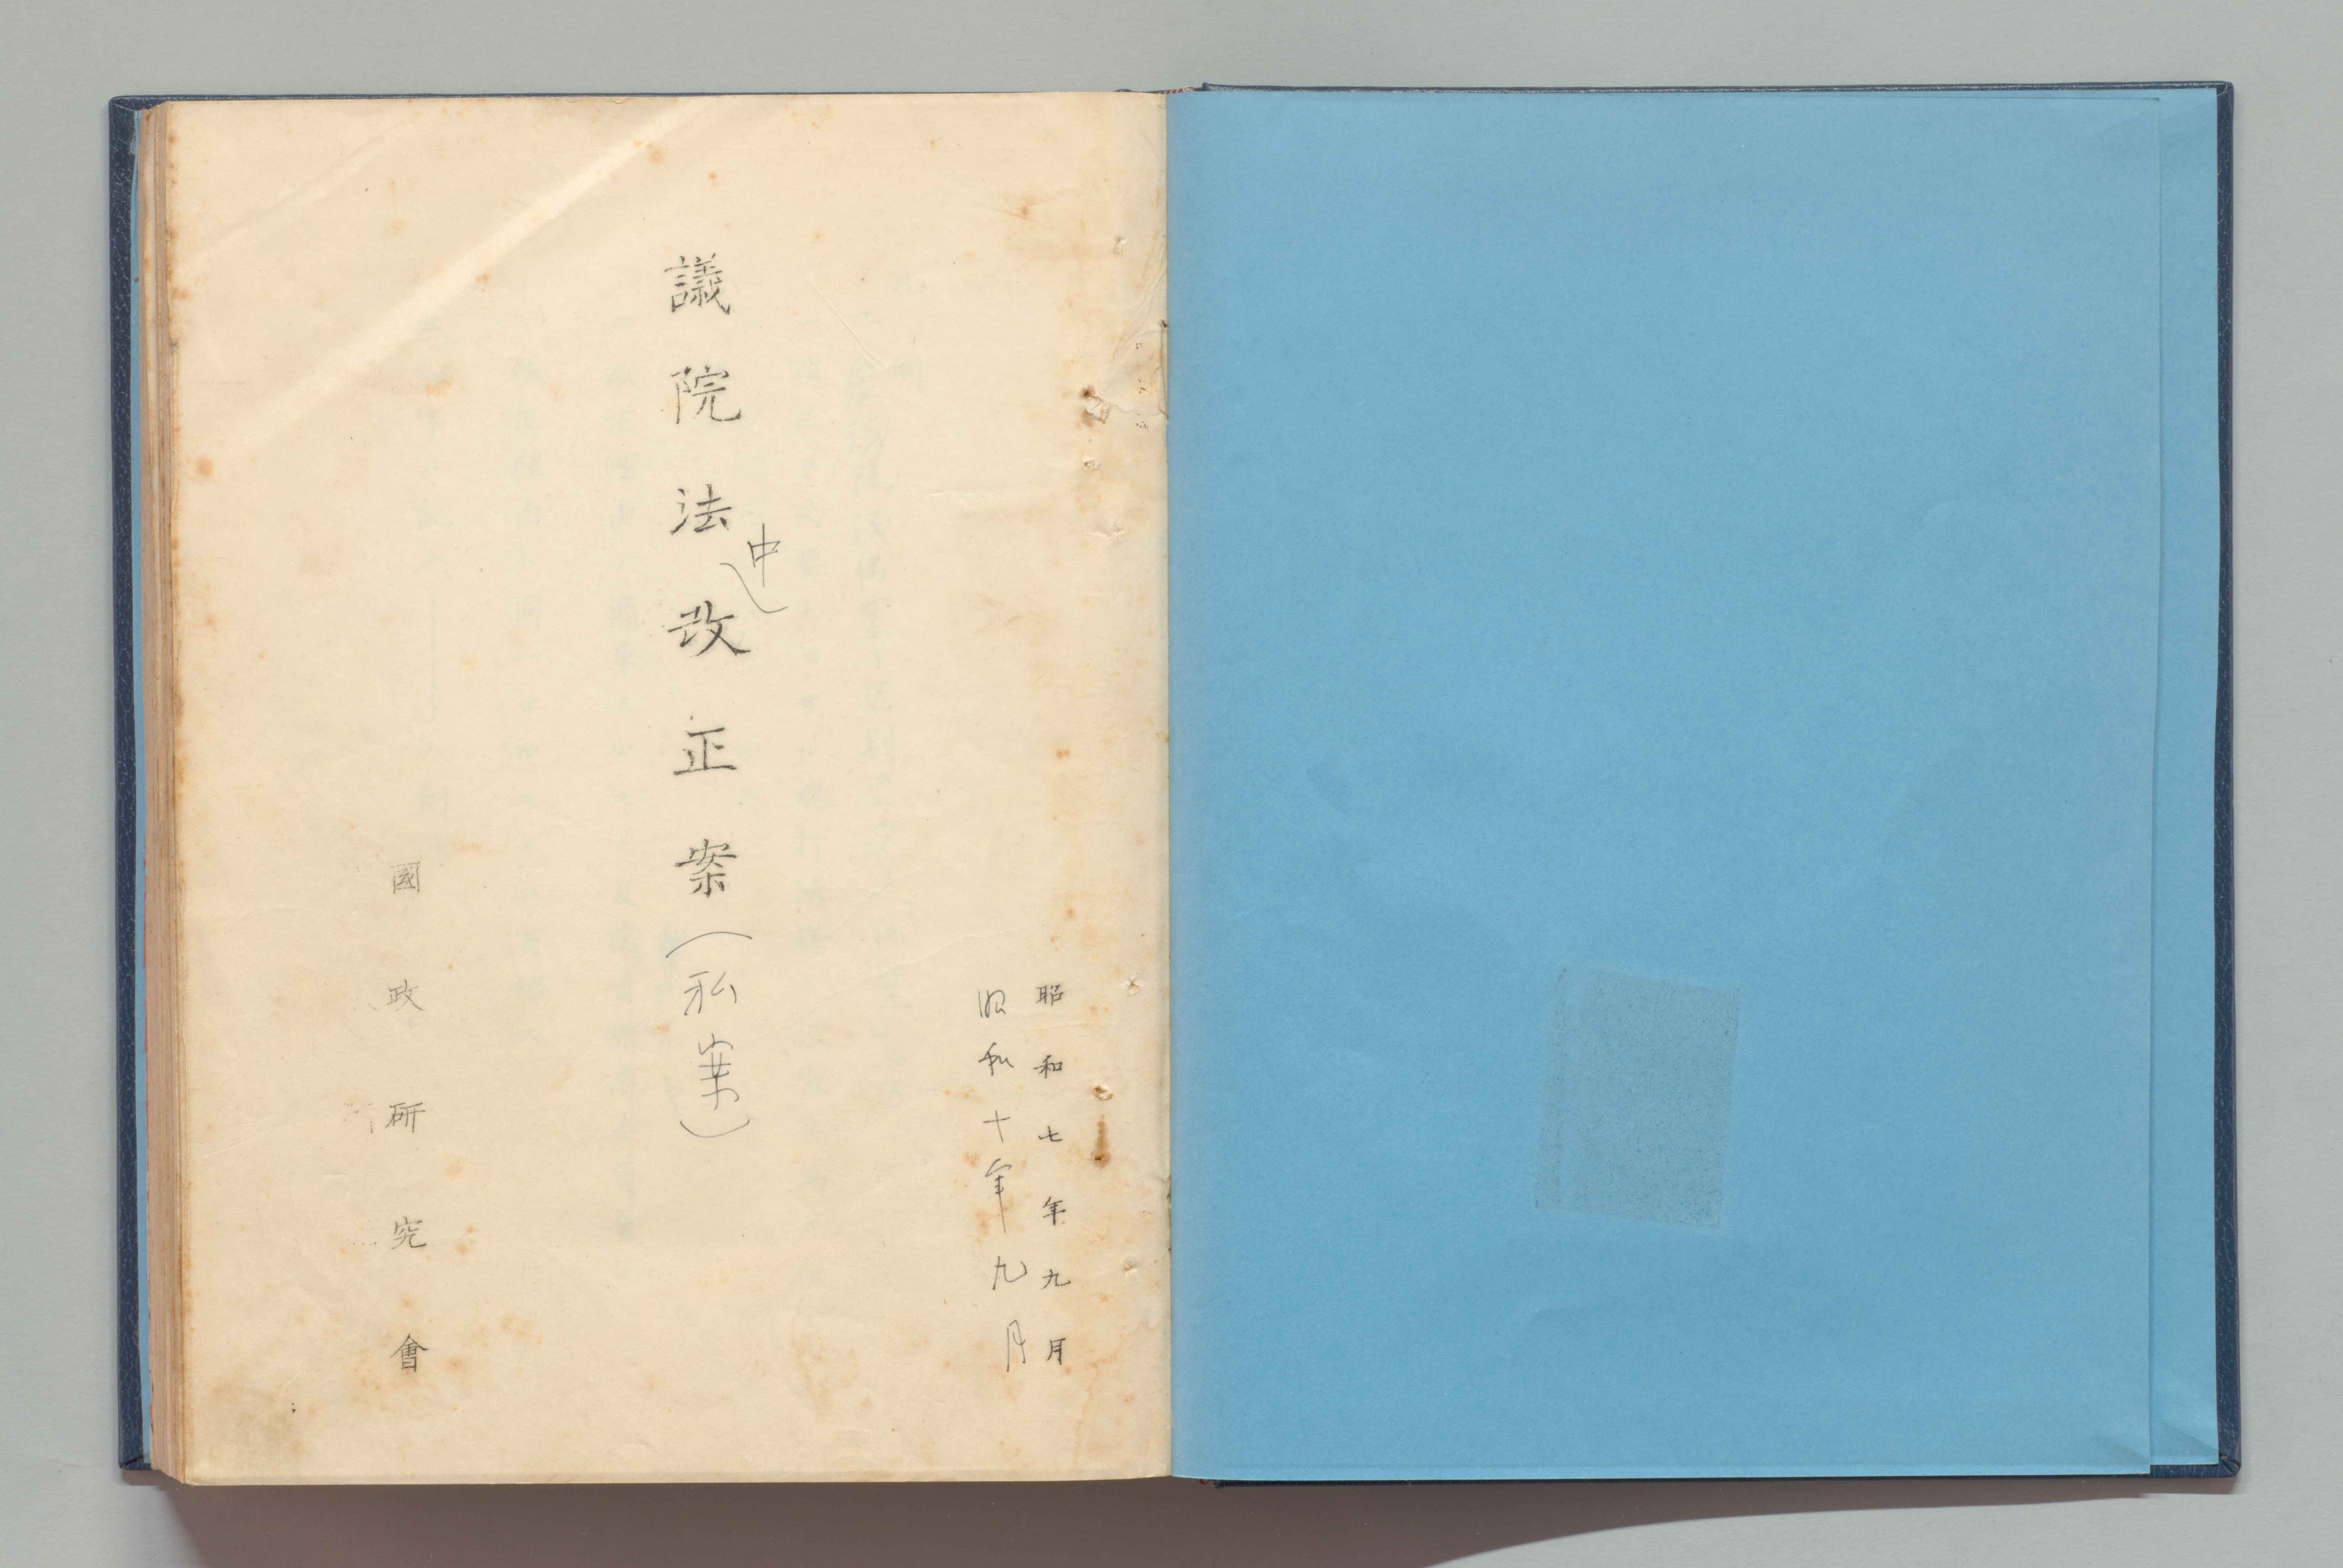 昭和七年九月
昭和十年九月
議院法中改正案(私案)
國政研究會